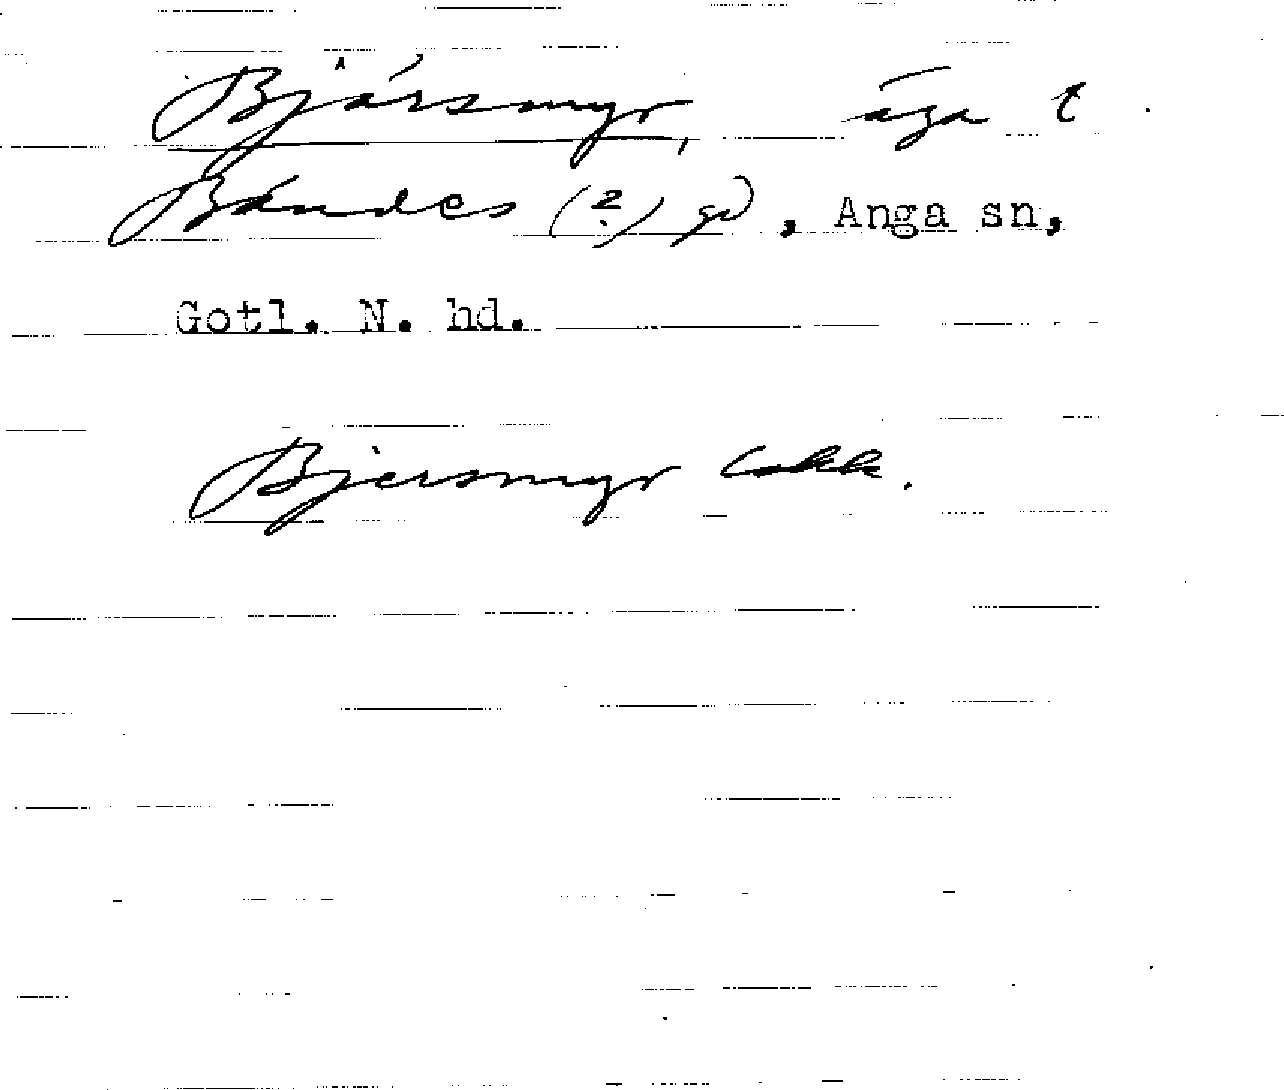 Bjärsmyr, äga t
Bändes (?) gd, Anga sn,
Gotl. N. hd.
Bjersmyr